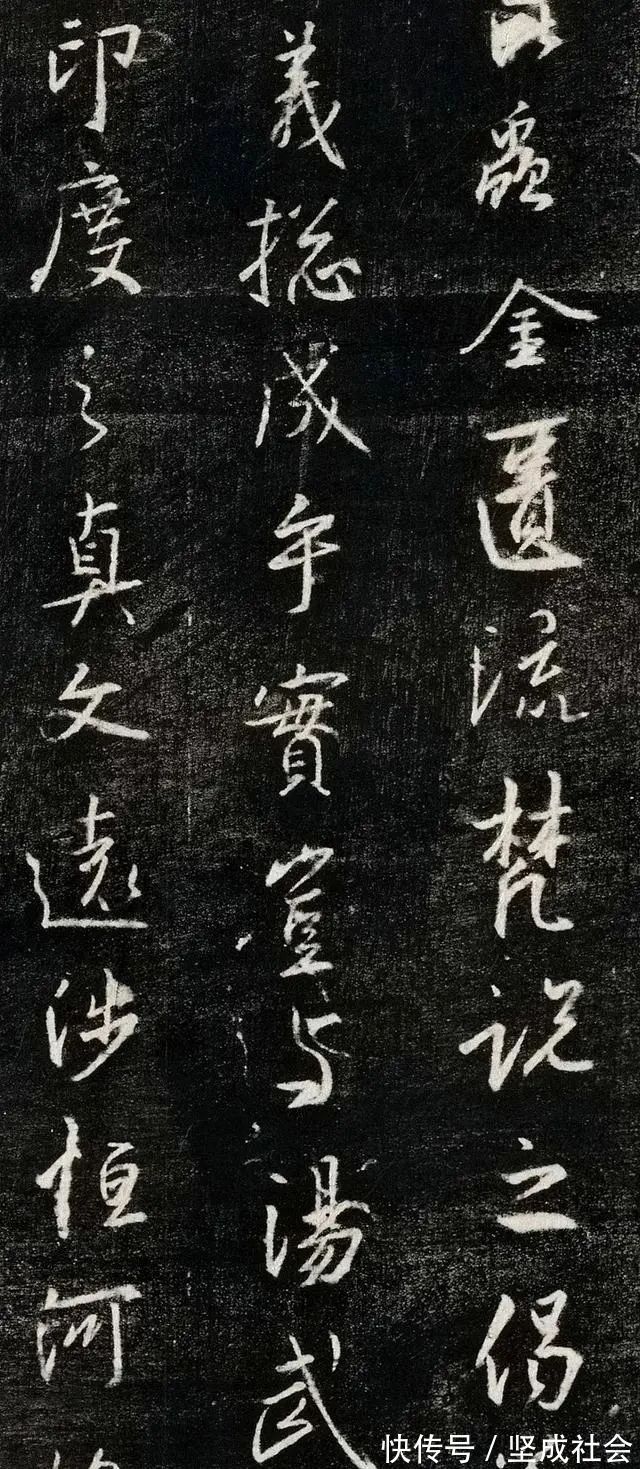 蟲金匱流梵說之偈
義摠成乎實豈與湯武
印度之真文遠涉恒河
快传号 / 坚成社会